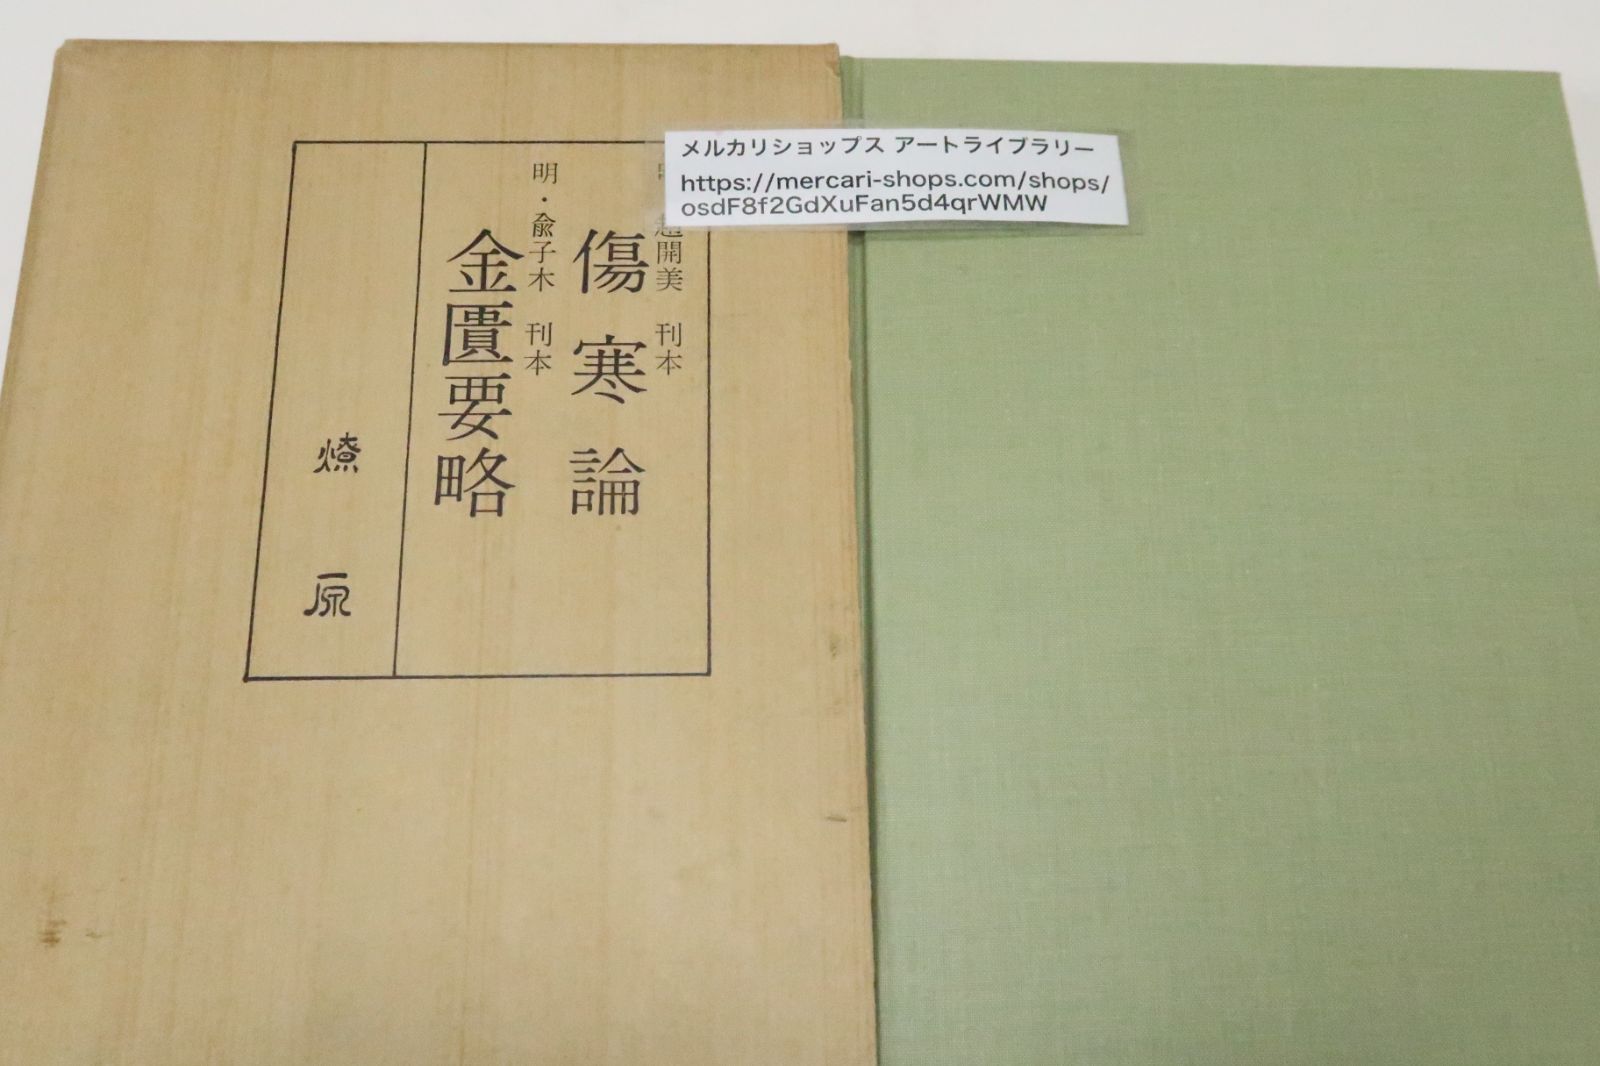 メルカリショップス アートライブラリー
https://mercari-shops.com/shops/
osdF8f2GdXuFan5d4qrWMW
開美 刊本
傷寒論
明・兪子木 刊本
金匱要略
燎原